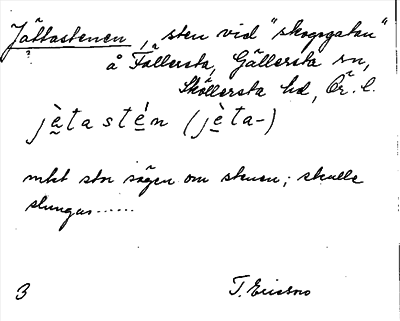 Jättastenen, sten vid "skogsgatan"
å Fällersta, Gällersta sn,
Sköllersta hd, Ör. l.
jètastén (jèta-)
mkt stor sägen om stenen; skulle
slungas......
3 T. Ericsson